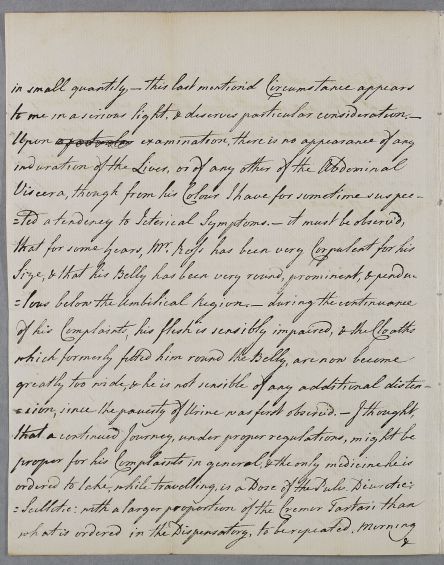 in small quantity, — this last mentiond Circumstance appears
to me in a serious light, & deserves particular consideration. —
Upon examination, there is no appearance of any
induration of the Liver, or of any other of the Abdominal
Viscera, though from his Colour I have for sometime suspec-
=ted a tendency to Icterical Symptoms. — it must be observ'd,
that for some Years, Mr. Ross has been very Corpulent for his
Size, & that his Belly has been very round, prominent, & pendu-
=lous below the Umbilical Region. — during the continuance
of his Complaints, his flesh is sensibly impaired, & the Cloaths
which formerly fitted him round the Belly, are now become
greatly too wide, & he is not sensible of any additional disten-
=cion, since the paucity of Urine was first observed. — I thought,
that a continued Journey, under proper regulations, might be
proper for his Complaints in general, & the only medicine he is
ordered to take, while travelling, is a Dose of the Pulv: Diuretic:
=Scillitic: with a larger proportion of the Cremor Tartari than
what is ordered in the Dispensatory, to be repeated, Morning
&